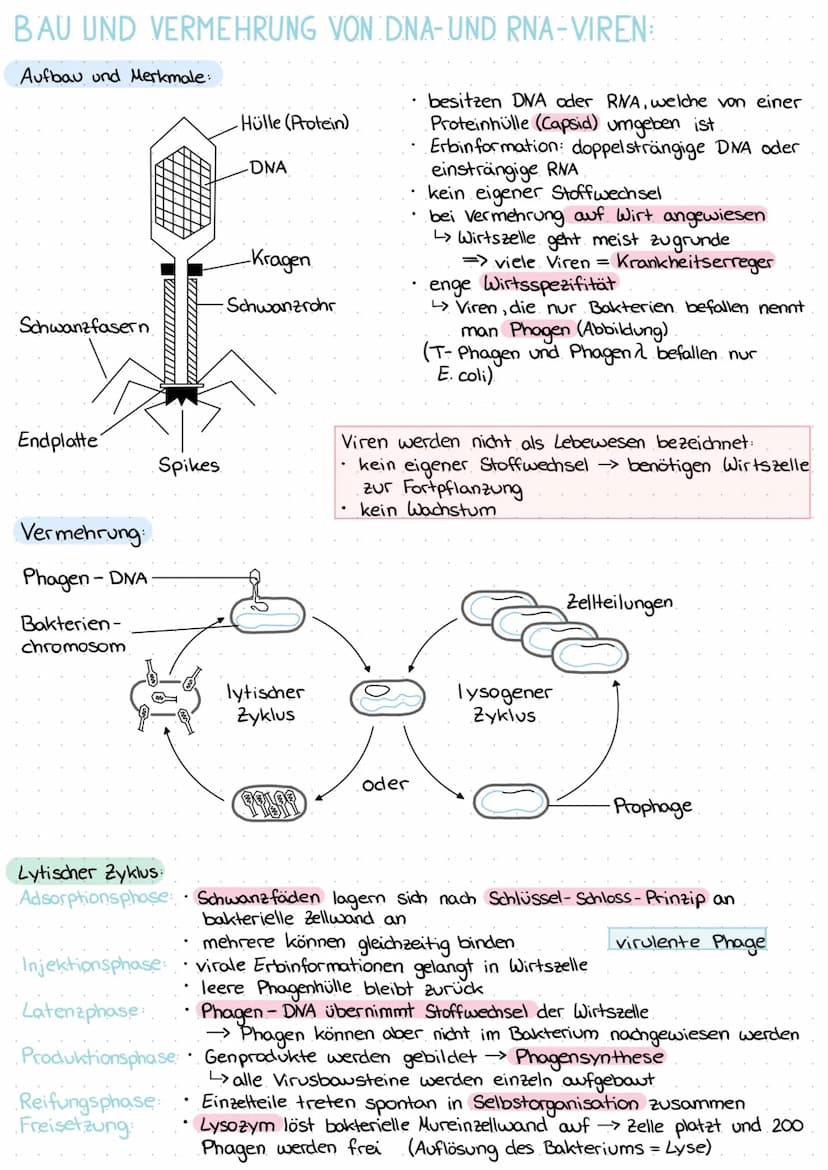 BAU UND VERMEHRUNG VON DNA-UND RNA-VIREN:
Aufbau und Merkmale:
Hülle (Protein)
DNA
Kragen
Schwanzrohr
Schwanzfasern
Endplatte
Spikes
· besitzen DNA oder RNA, welche von einer
Proteinhülle (Capsid) umgeben ist
· Erbinformation: doppelsträngige DNA oder
einsträngige RNA
· kein eigener Stoffwechsel
· bei Vermehrung auf Wirt angewiesen
↳ Wirtszelle geht meist zugrunde
=> viele Viren = Krankheitserreger
· enge Wirtsspezifität
↳ Viren, die nur Bakterien befallen nennt
man Phagen (Abbildung)
(T-Phagen und Phagen λ befallen nur
E. coli)
Viren werden nicht als Lebewesen bezeichnet:
· kein eigener Stoffwechsel → benötigen Wirtszelle
zur Fortpflanzung
· kein Wachstum
Vermehrung:
Phagen-DNA
Bakterien-
chromosom
lytischer
Zyklus
oder
lysogener
Zyklus
Zellteilungen
Prophage
Lytischer Zyklus:
Adsorptionsphase: · Schwanzfäden lagern sich nach Schlüssel-Schloss-Prinzip an
bakterielle Zellwand an
· mehrere können gleichzeitig binden
virulente Phage
Injektionsphase: · virale Erbinformationen gelangt in Wirtszelle
· leere Phagenhülle bleibt zurück
Latenzphase: · Phagen-DNA übernimmt Stoffwechsel der Wirtszelle
→ Phagen können aber nicht im Bakterium nachgewiesen werden
Produktionsphase: · Genprodukte werden gebildet → Phagensynthese
↳ alle Virusbausteine werden einzeln aufgebaut
Reifungsphase: · Einzelteile treten spontan in Selbstorganisation zusammen
Freisetzung: · Lysozym löst bakterielle Mureinzellwand auf → Zelle platzt und 200
Phagen werden frei (Auflösung des Bakteriums = Lyse)